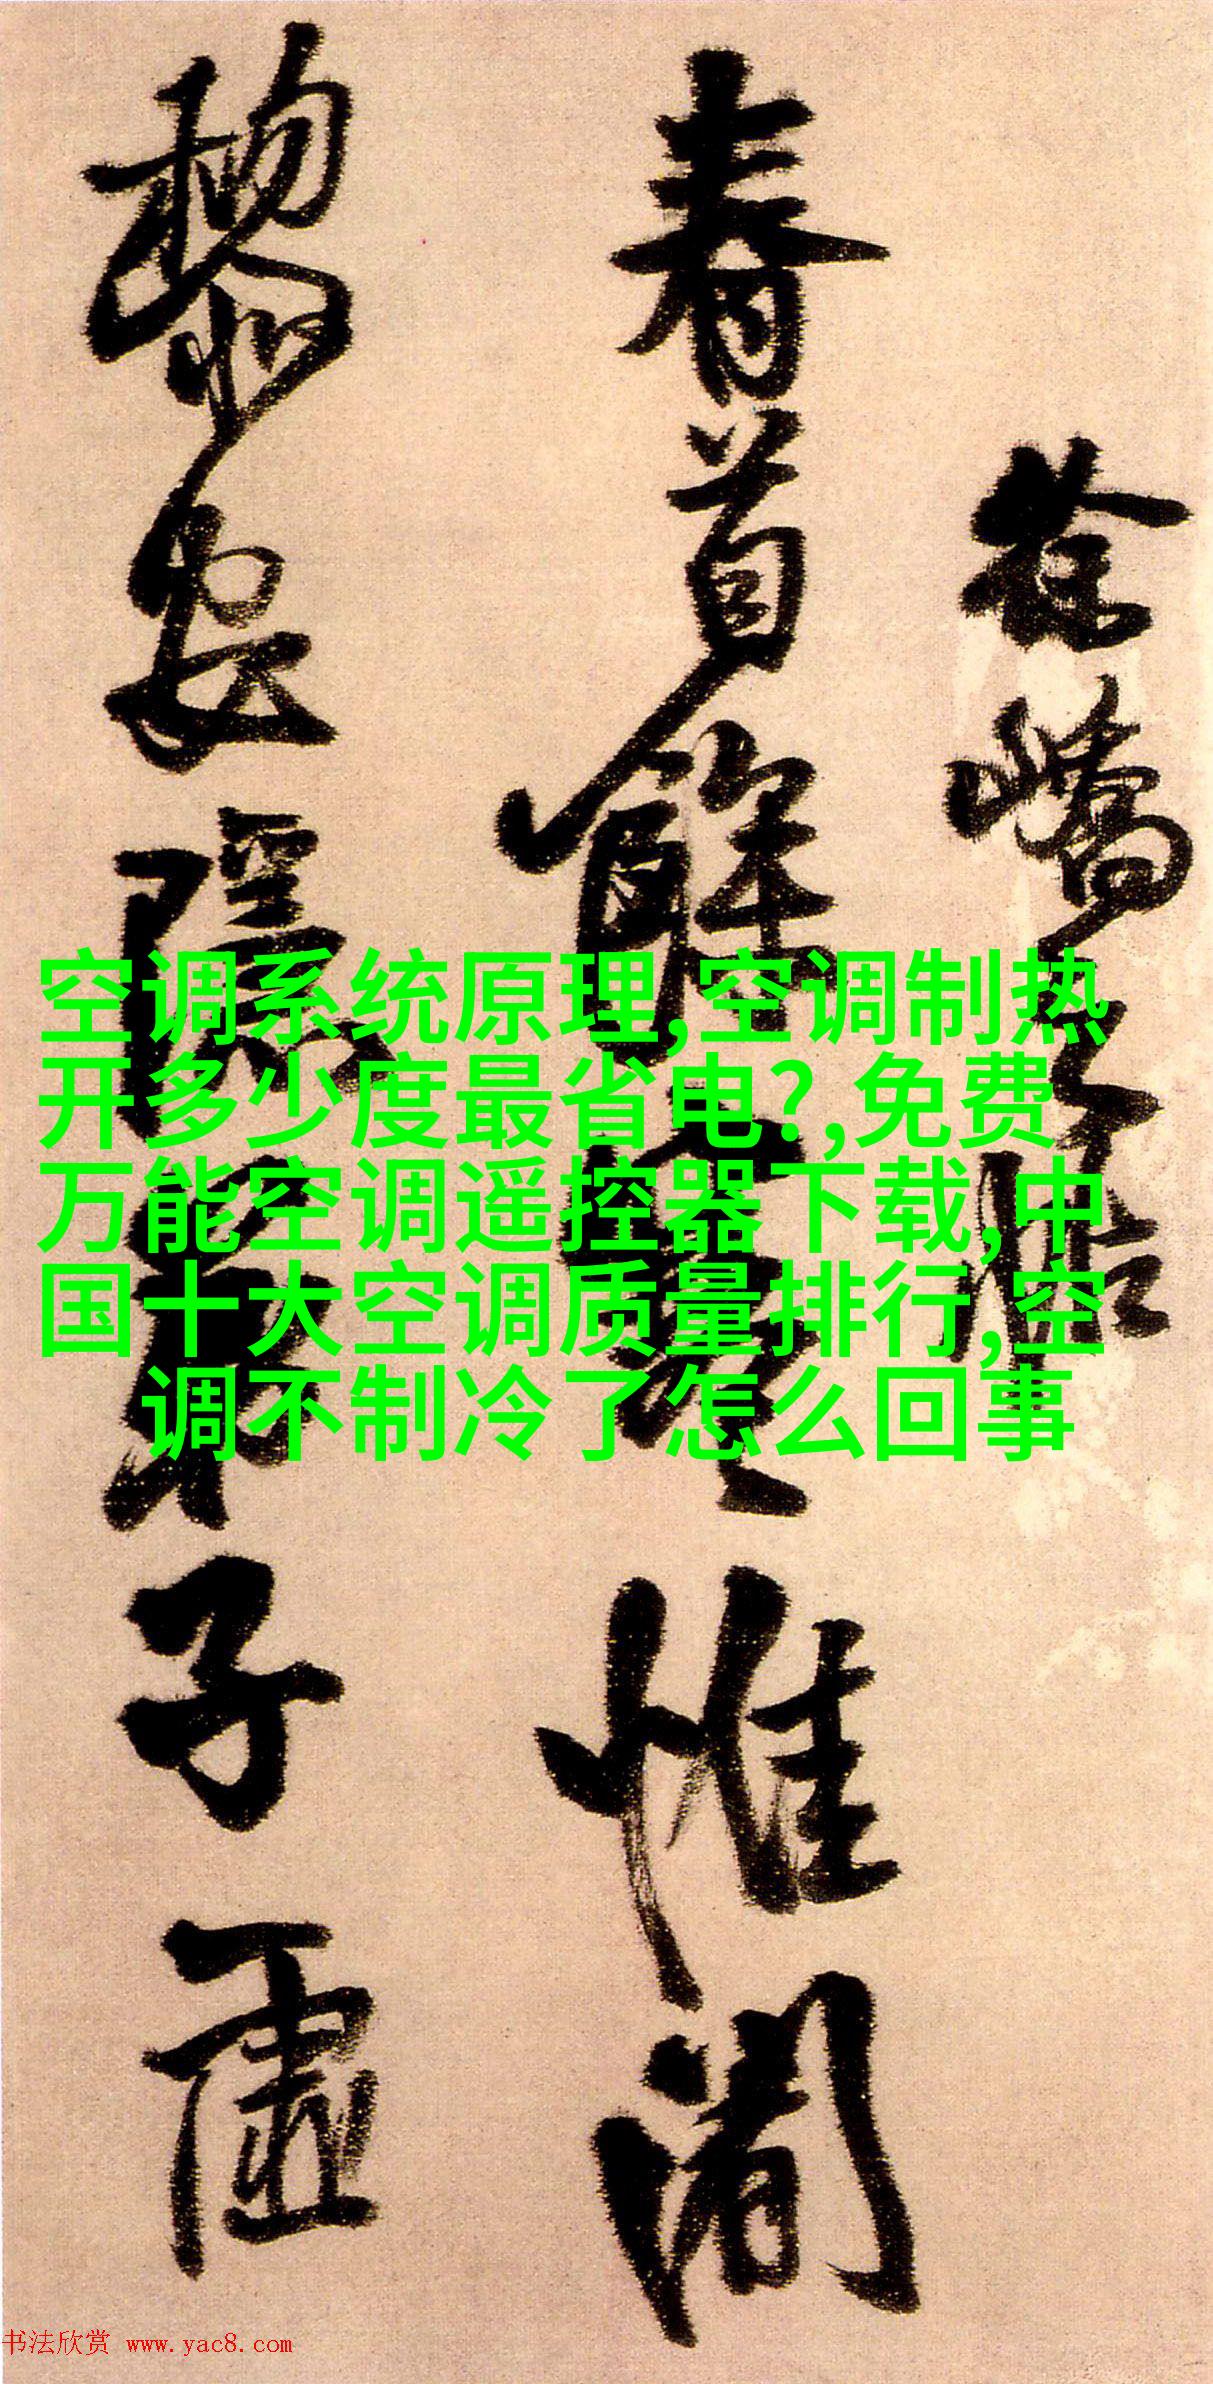 徐嶠之帖
春首餘寒惟闍
黎安隱子虛
空调系统原理,空调制热
开多少度最省电?,免费
万能空调遥控器下载,中
国十大空调质量排行,空
调不制冷了怎么回事
书法欣赏 www.yac8.com